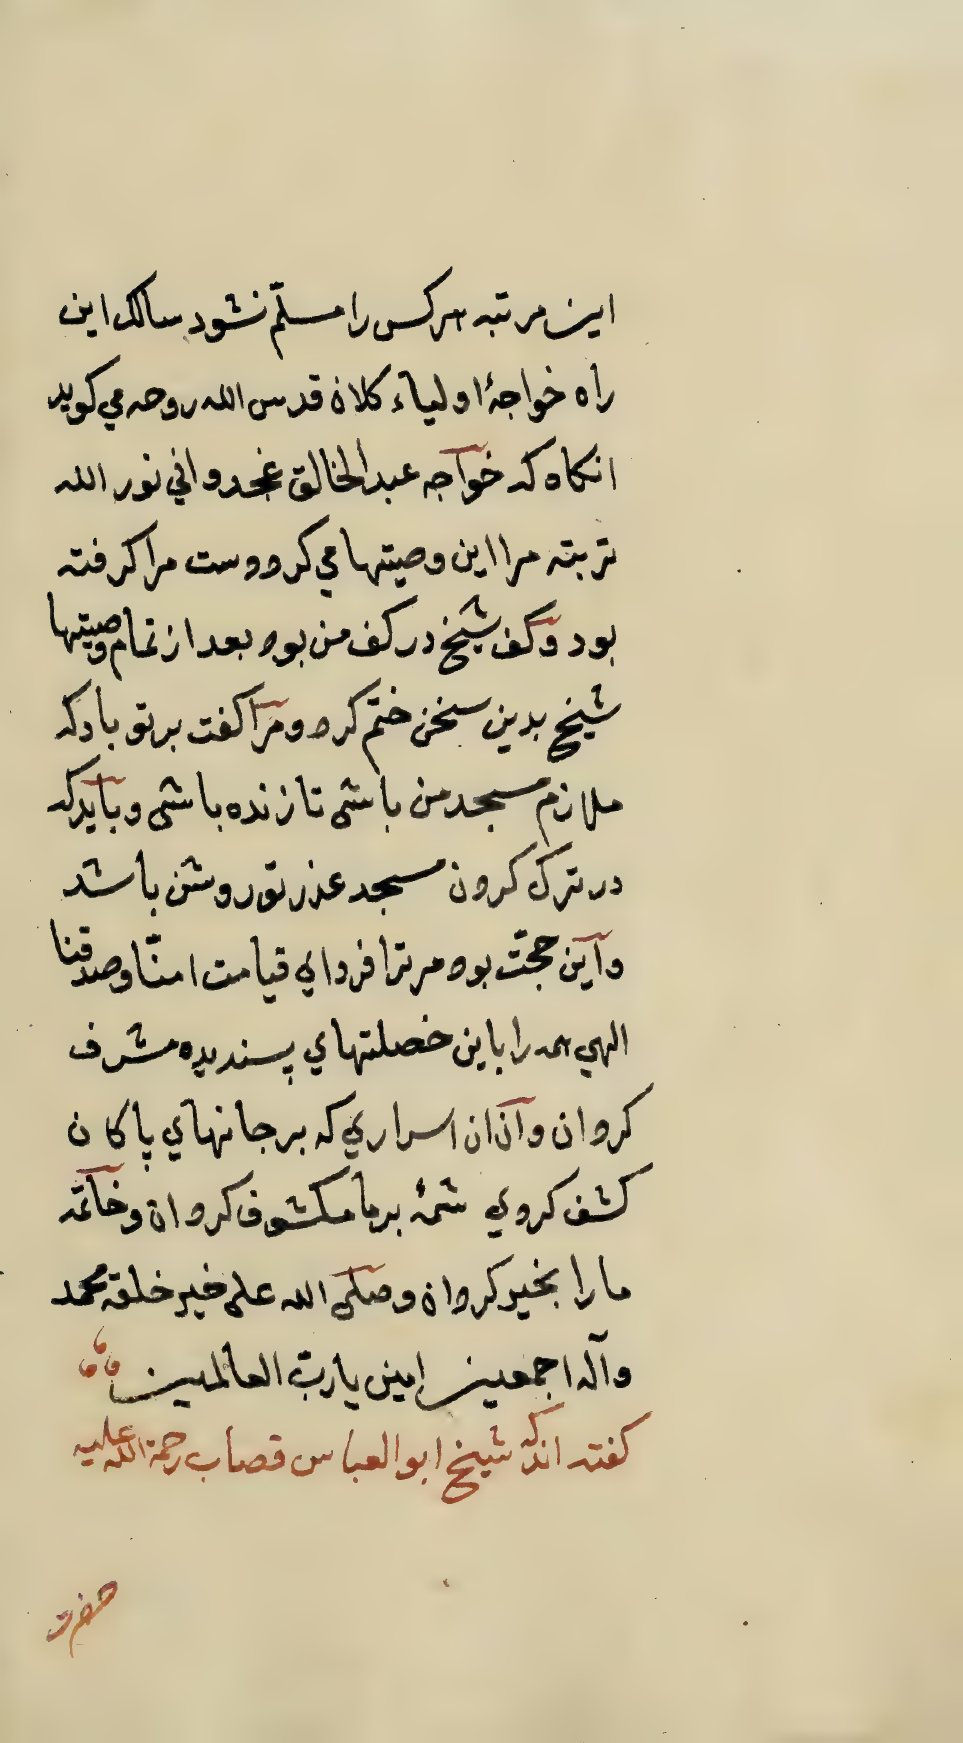 این مرتبه هرکس را مسلّم نشود سالک این
راه خواجهٔ اولیاء کلان قدس الله روحه می کوید
انکاه که خواجه عبدالخالق غجدوانی نور الله
تربته مرا این وصیتها می کرد و دست مرا کرفته
بود و کف شیخ در کف من بود بعد از تمام وصیتها
شیخ بدین سخن ختم کرد و مرا کفت بر تو باد که
ملازم مسجد من باشی تا زنده باشی و باید که
در ترک کردن مسجد عذر تو روشن باشد
و این حجّت بود مر ترا فردای قیامت امنّا و صدقنا
الهی همه را باین خصلتهای پسندیده مشرف
کردان و آن ان اسراری که بر جانهای پاکان
کشف کردی شمهٔ بر ما مکشوف کردان و خاتمه
ما را بخیر کردان و صلّی الله علی خیر خلقه محمد
و آله اجمعین امین یا ربّ العالمین
کفته اند که شیخ ابو العباس قصاب رحمة الله علیه
حضرت